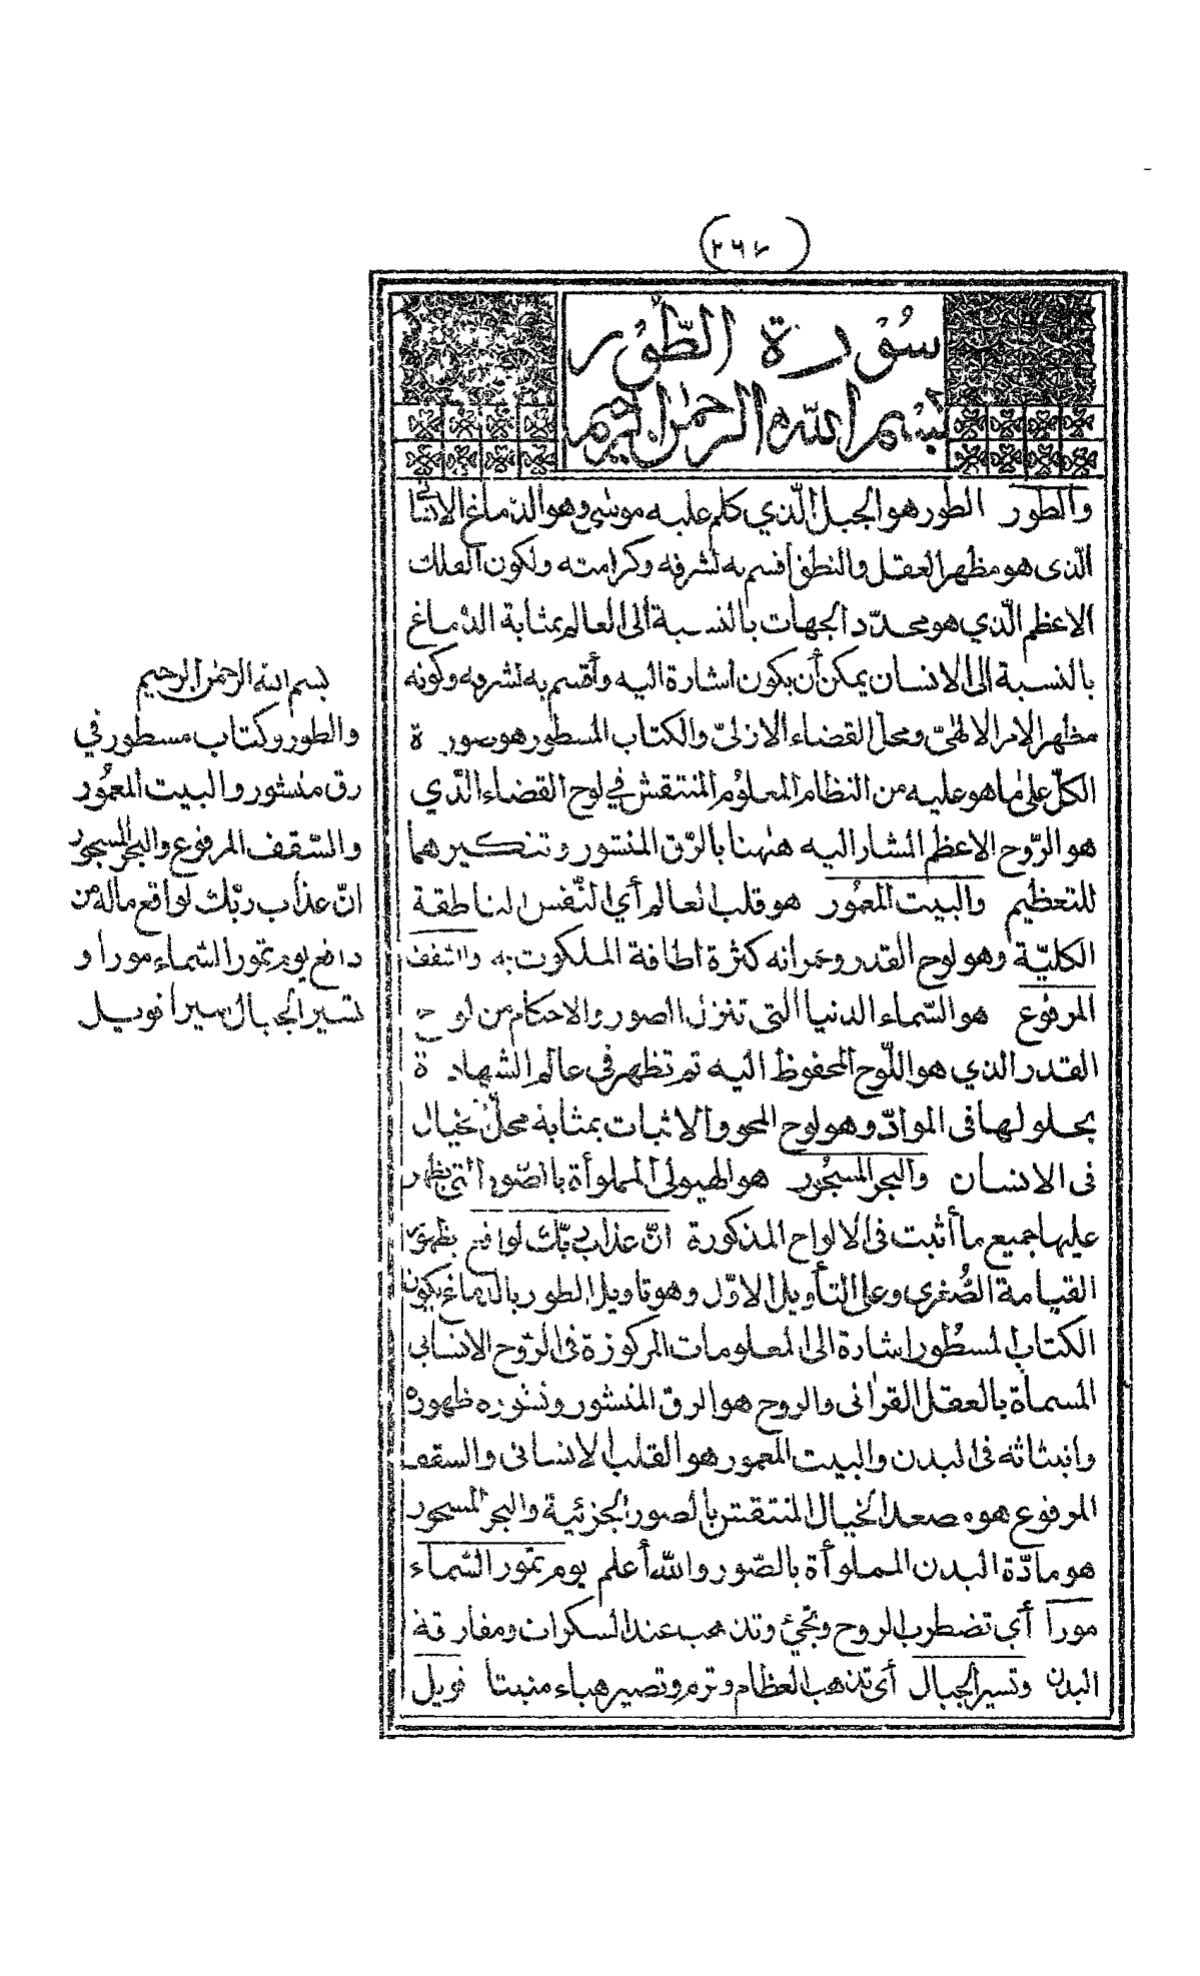 سُوْرة الطُّوْر
بسم الله الرحمن الرحيم
والطور الطور هو الجبل الّذي كلم عليه موسٰى وهو الدماغ الانساني
الذى هو مظهر العقل والنطق أقسم به لشرفه وكرامته ولكون الفلك
الاعظم الّذي هو محدّد الجهات بالنسبة الى العالم بمثابة الدّماغ
بالنسبة الى الانسان يمكن أن يكون اشارة اليه وأقسم به لشرفه وكونه
مظهر الامر الالهيّ ومحل القضاء الازليّ والكتاب المسطور هو صورة
الكلّ على ما هو عليه من النظام المعلوم المنتقش في لوح القضاء الذّي
هو الرّوح الاعظم المشار اليه هٰهنا بالرّق المنشور وتنكيرهما
للتعظيم والبيت المعمُور هو قلب العالم أي النّفس الناطقة
الكليّة وهو لوح القدر وعمرانه كثرة اطافة الملكوت به والسقف
المرفوع هو السّماء الدنيا التى تنزل الصور والاحكام من لوح
القدر الذي هو اللّوح المحفوظ اليه ثم تظهر في عالم الشهادة
بحلولها فى الموادّ وهو لوح المحو والاثبات بمثابة محلّ الخيال
فى الانسان والبحر المسجُور هو الهيولى المملوأة بالصّور التى يظهر
عليها جميع ما أثبت فى الالواح المذكورة انّ عذاب ربّك لواقع بظهور
القيامة الصُّغرى وعلى التأويل الاوّل وهو تاويل الطور بالدماغ يكون
الكتاب المسطُور اشارة الى المعلومات المركوزة فى الرّوح الانسانى
المسماة بالعقل القرآنى والروح هو الرق المنشور ونشوره ظهوره
وانبثاثه فى البدن والبيت المعمور هو القلب الانسانى والسقف
المرفوع هو مصعد الخيال المنتقش بالصور الجزئية والبحر المسجور
هو مادّة البدن المملوأة بالصّور والله أعلم يوم تمور السّماء
مورا أي تضطرب الروح وتجئ وتذهب عند السكرات ومفارقة
البدن وتسير الجبال أى تذهب العظام وترم وتصير هباء منبثا فويل
بسم الله الرحمن الرحيم
والطور وكتاب مسطور في
رق منشور والبيت المعمُور
والسّقف المرفوع والبحر المسجور
انّ عذاب ربّك لواقع ماله من
دافع يوم تمور السّماء مورا و
تسير الجبال سيرا فويل